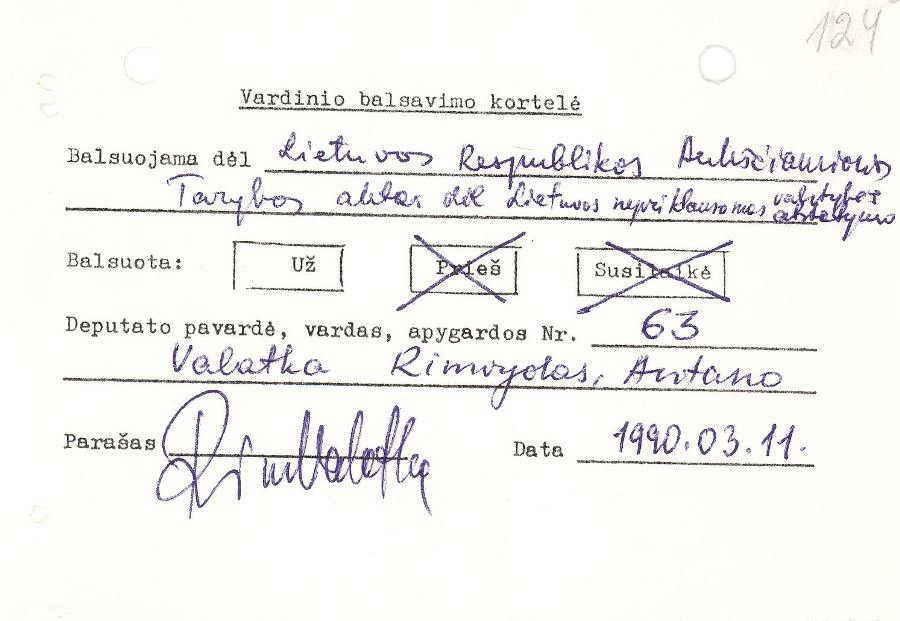 124
Vardinio balsavimo kortelė
Balsuojama dėl Lietuvos Respublikos Aukščiausiosios
Tarybos aktas dėl Lietuvos nepriklausomos valstybės
atstatymo
Balsuota: Už Prieš Susilaikė
Deputato pavardė, vardas, apygardos Nr. 63
Valatka Rimvydas, Antano
Parašas RimValatka Data 1990.03.11.